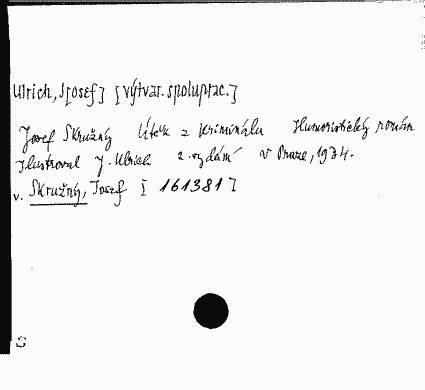 Ulrich, J[osef] [výtvar. spoluprac.]
Josef Skružný Útěk z kriminálu Humoristický román
Ilustroval J. Ulrich 2. vydání V Praze, 1934.
v. Skružný, Josef [ 161381 ]